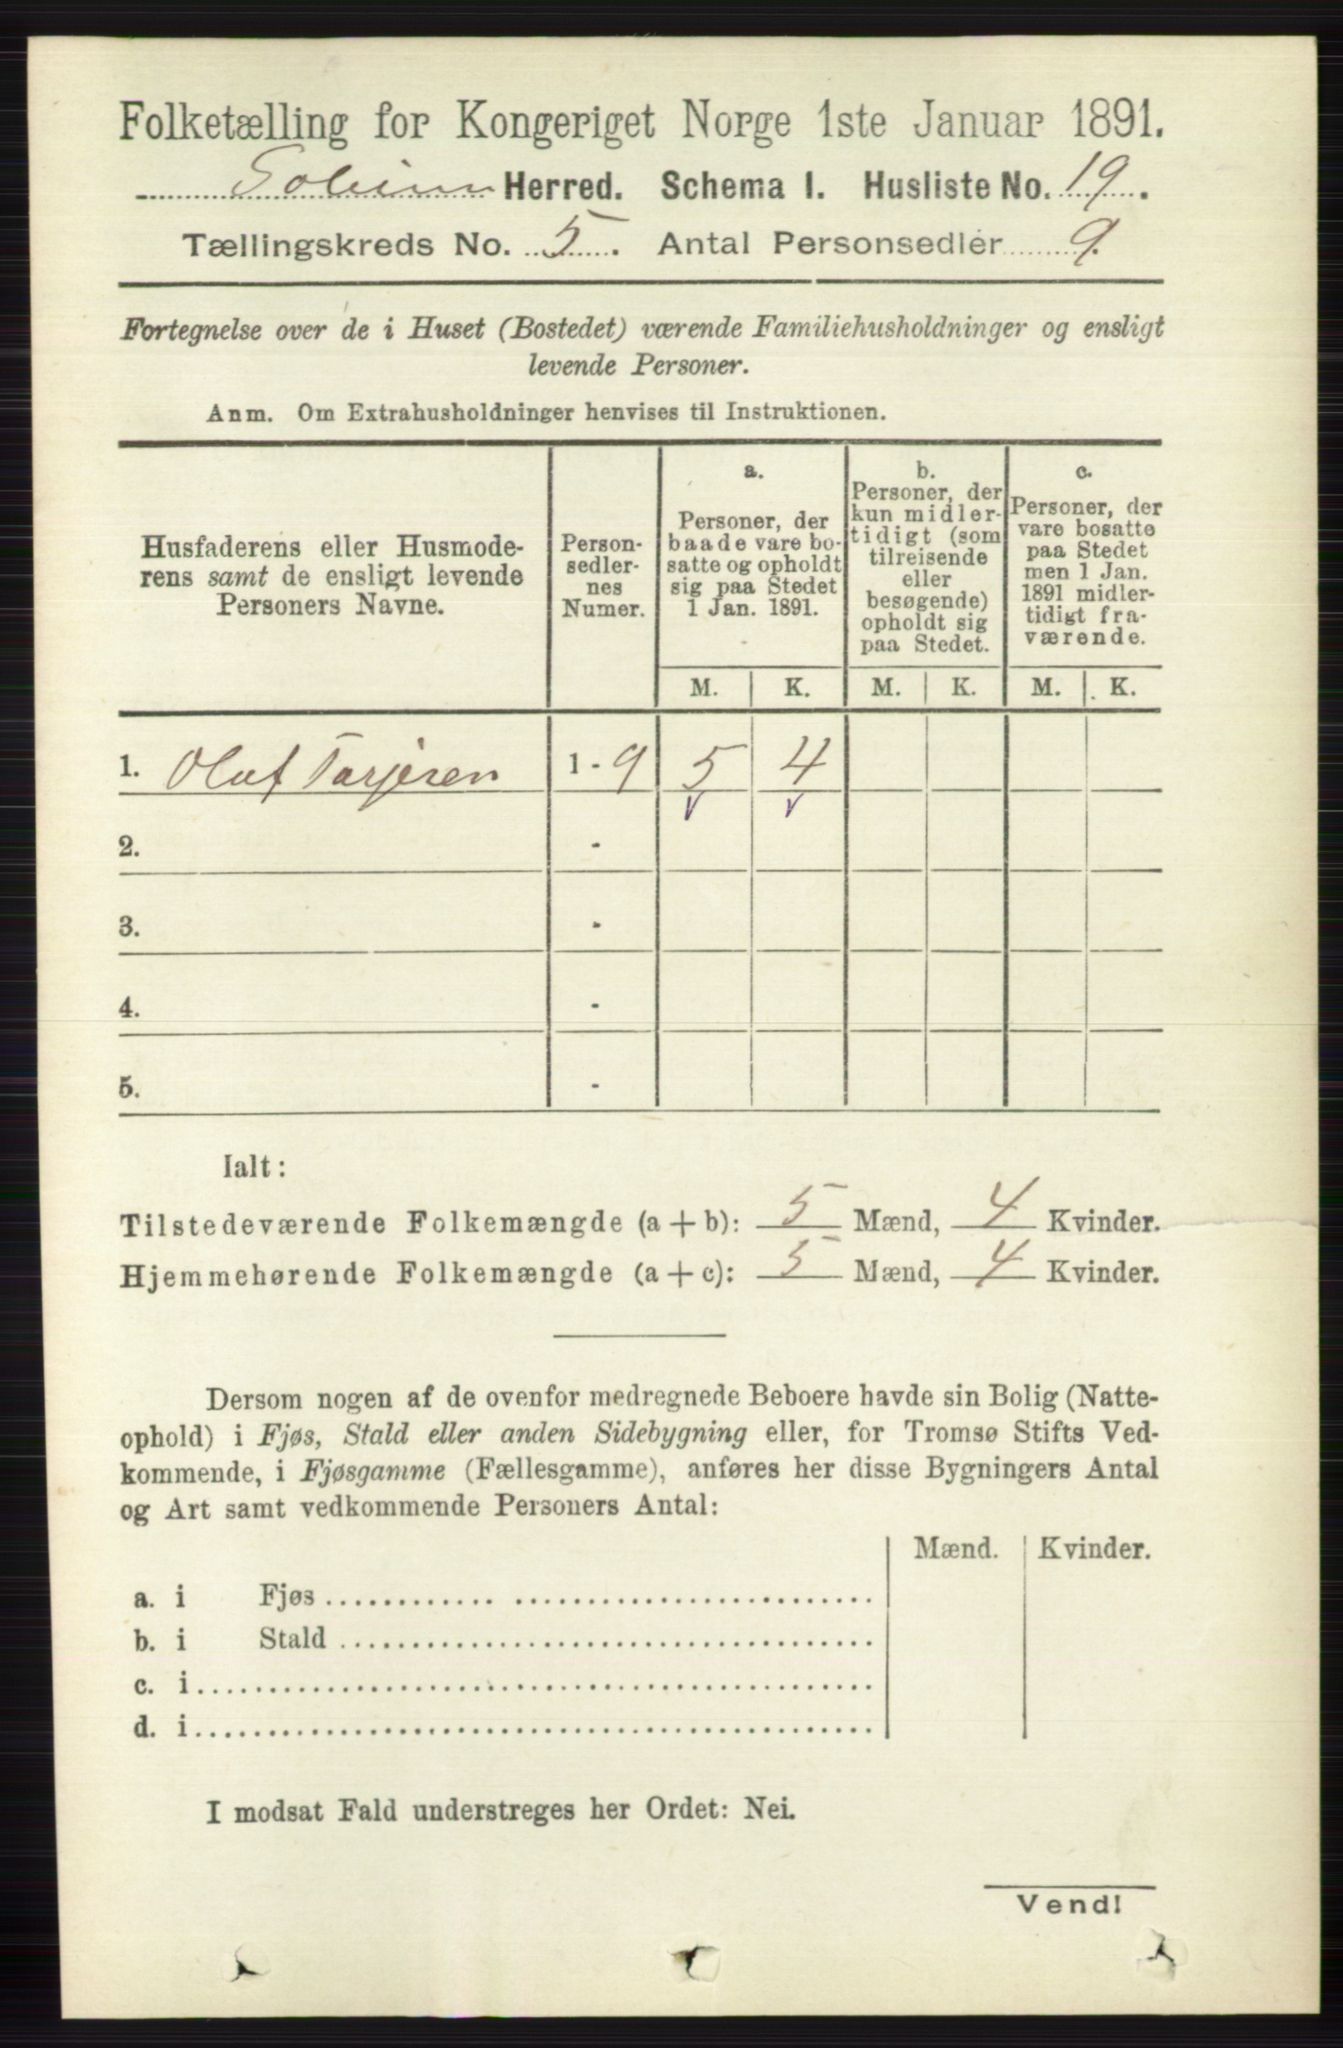 Folketælling for Kongeriget Norge 1ste Januar 1891.
Solum Herred. Schema I. Husliste No. 19.
Tællingskreds No. 5. Antal Personsedler 9.
Fortegnelse over de i Huset (Bostedet) værende Familiehusholdninger og ensligt
levende Personer.
Anm. Om Extrahusholdninger henvises til Instruktionen.
Husfaderens eller Husmode-
rens samt de ensligt levende
Personers Navne.
Person-
sedler-
nes
Numer.
a.
Personer, der
baade vare bo-
satte og opholdt
sig paa Stedet
1 Jan. 1891.
b.
Personer, der
kun midler-
tidigt (som
tilreisende
eller
besøgende)
opholdt sig
paa Stedet.
c.
Personer, der
vare bosatte
paa Stedet
men 1 Jan.
1891 midler-
tidigt fra-
værende.
M. K. M. K. M. K.
1. Oluf Tarjesen 1 - 9 5 4
v v
2. -
3. -
4. -
5. -
Ialt:
Tilstedeværende Folkemængde (a + b): 5 Mænd, 4 Kvinder.
Hjemmehørende Folkemængde (a + c): 5 Mænd, 4 Kvinder.
Dersom nogen af de ovenfor medregnede Beboere havde sin Bolig (Natte-
ophold) i Fjøs, Stald eller anden Sidebygning eller, for Tromsø Stifts Ved-
kommende, i Fjøsgamme (Fællesgamme), anføres her disse Bygningers Antal
og Art samt vedkommende Personers Antal:
Mænd. Kvinder.
a. i Fjøs
b. i Stald
c. i
d. i
I modsat Fald understreges her Ordet: Nei.
Vend!